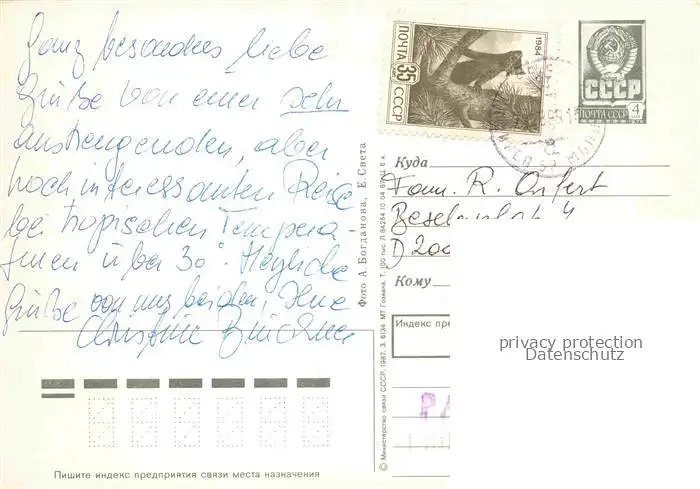 Ganz besonders liebe
Grüße von einer sehr
anstrengenden, aber
hochinteressanten Reise
bei tropischen Tempera-
turen über 30°. Herzliche
Grüße von uns beiden, Ihre
Christine
Пишите индекс предприятия связи места назначения
Фото А. Богданова, Е. Света
© Министерство связи СССР, 1987. З. 6134. МТ Гознака. Т. 100 тыс.
ПОЧТА
35
СССР
1984
СССР
ПОЧТА СССР 4
Куда
Fam. R.
4
D 200
Кому
Индекс пре
privacy protection
Datenschutz